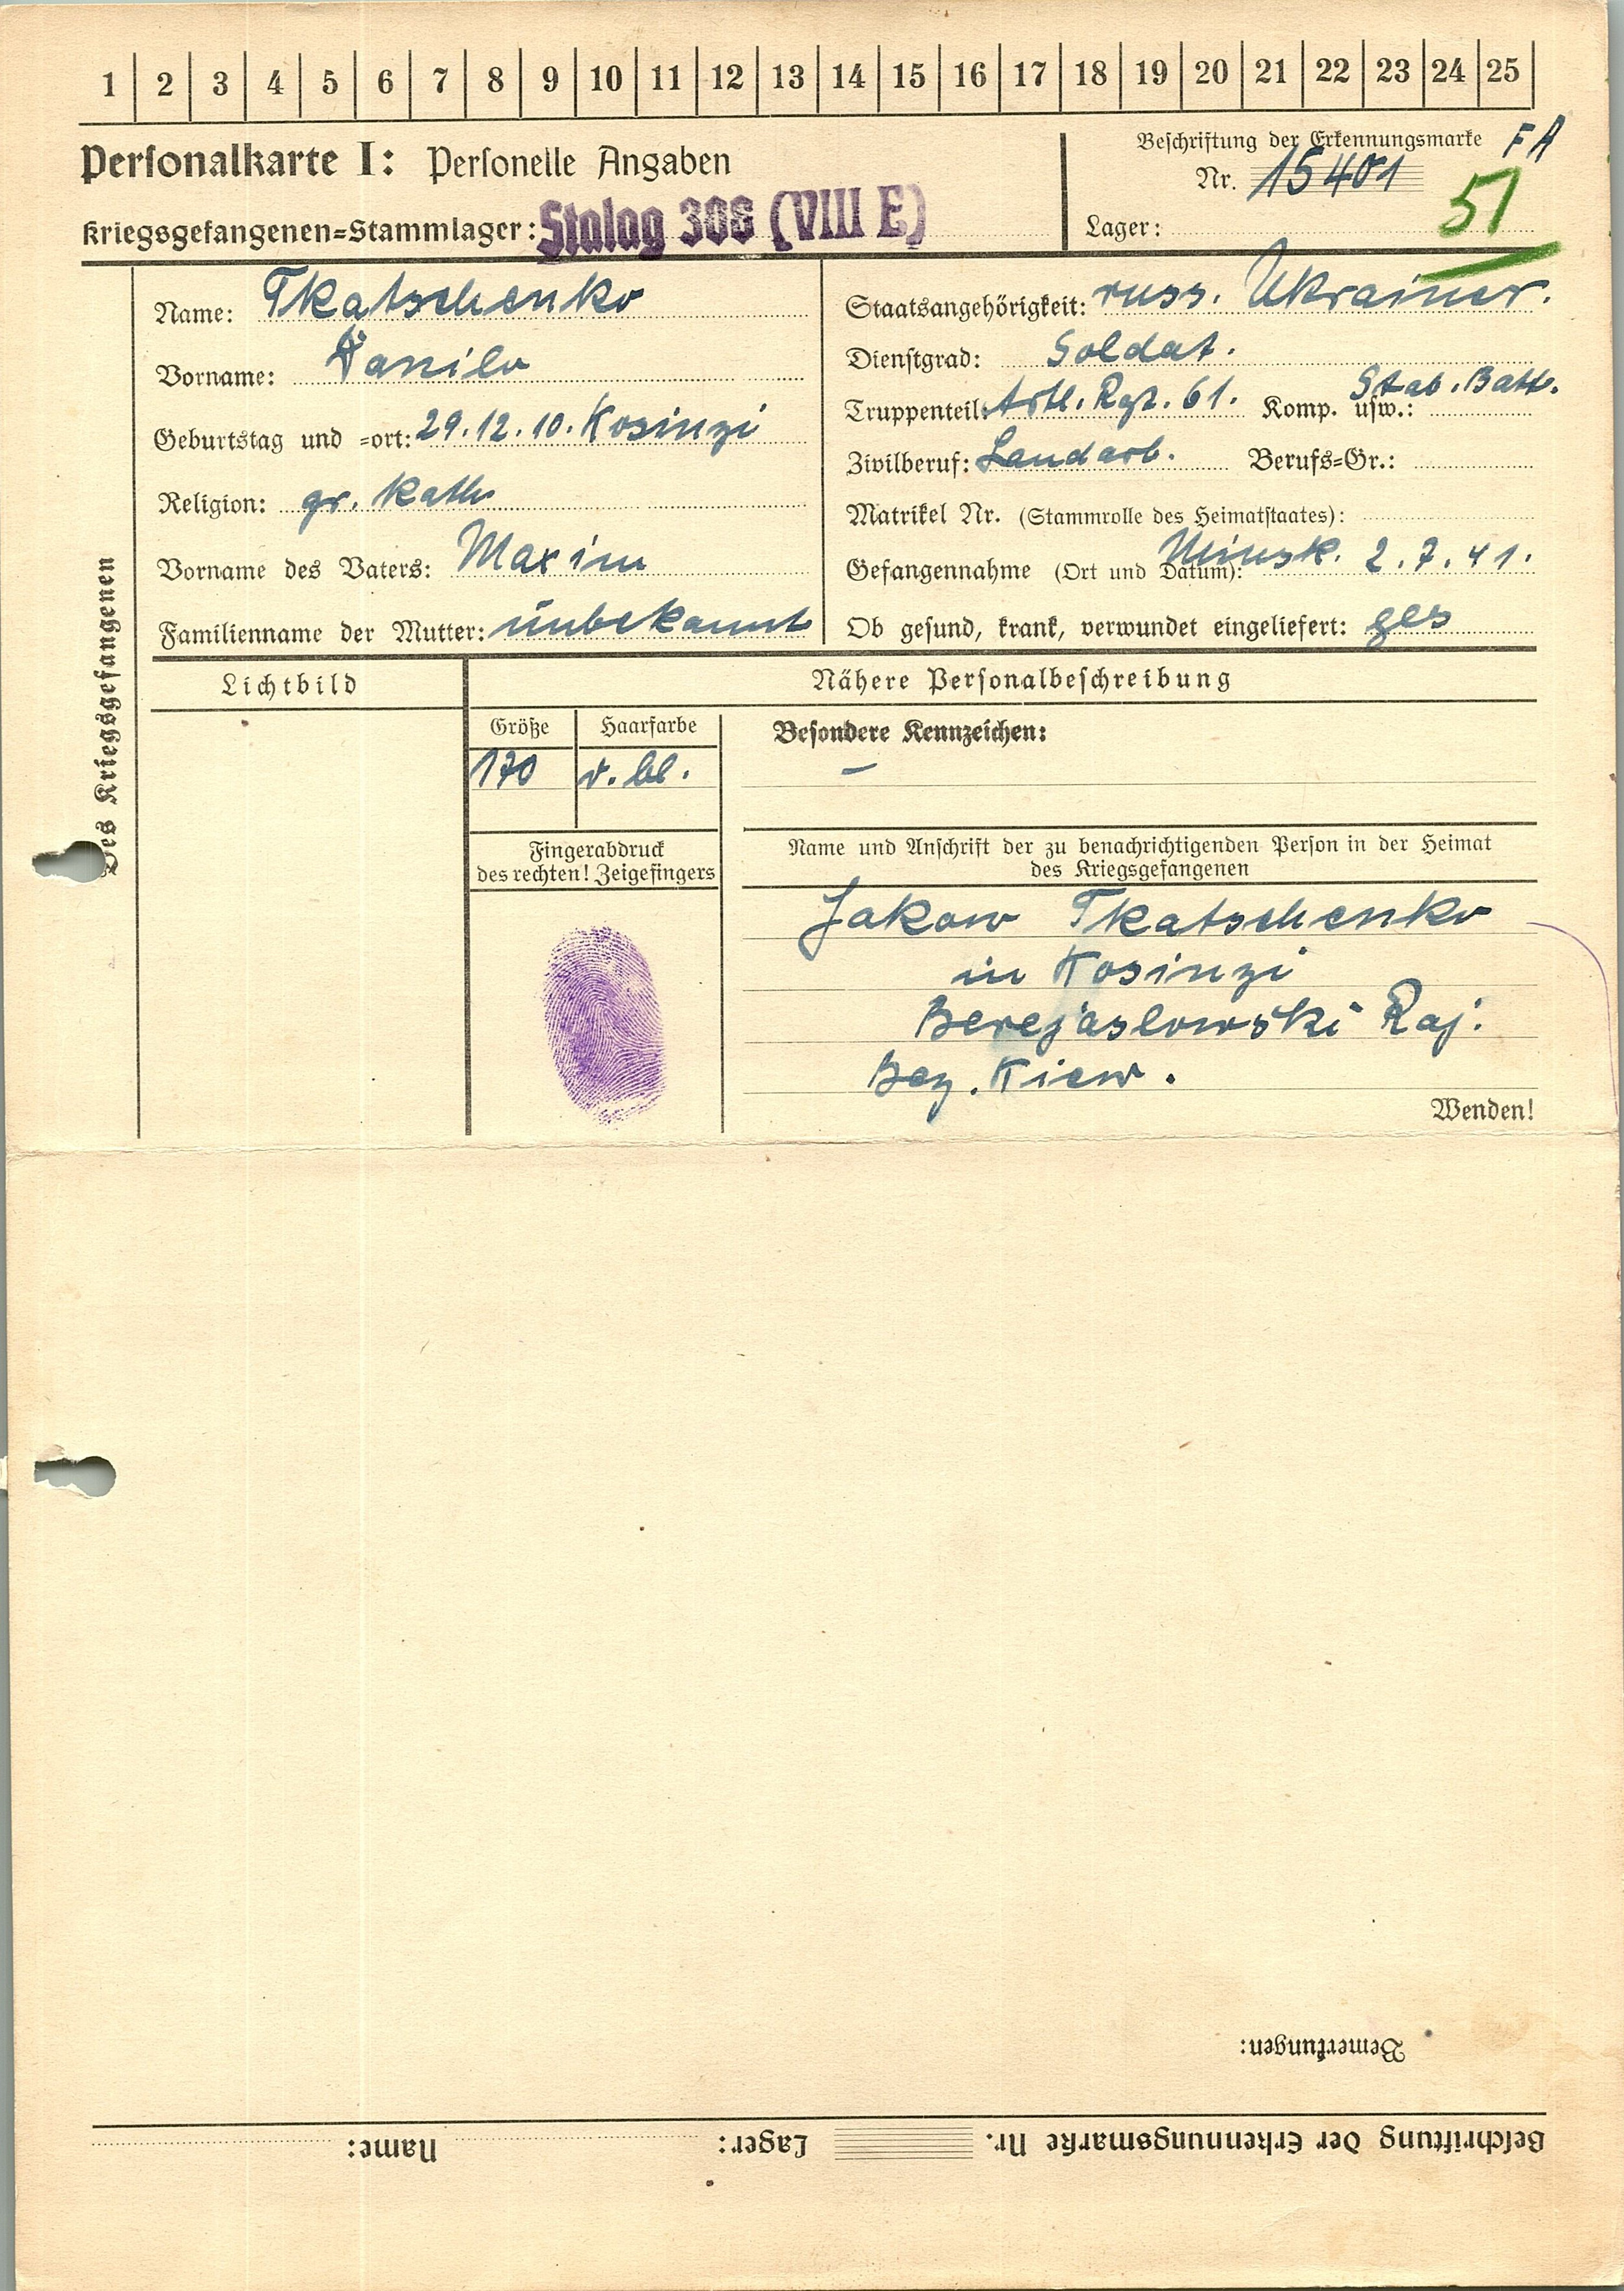 1 2 3 4 5 6 7 8 9 10 11 12 13 14 15 16 17 18 19 20 21 22 23 24 25
Personalkarte I: Personelle Angaben
Kriegsgefangenen=Stammlager: Stalag 308 (VIII E)
Beschriftung der Erkennungsmarke FA
Nr. 15401
51
Lager:
Des Kriegsgefangenen
Name: Tkatschenko
Vorname: Danilo
Geburtstag und =ort: 29.12.10. Kosinzi
Religion: gr. Kath
Vorname des Vaters: Maxim
Familienname der Mutter: unbekannt
Staatsangehörigkeit: russ. Ukrainer.
Dienstgrad: Soldat.
Truppenteil: Artl. Rgt. 61. Komp. usw.: Stab. Batt.
Zivilberuf: Landarb. Berufs=Gr.:
Matrikel Nr. (Stammrolle des Heimatstaates):
Gefangennahme (Ort und Datum): Minsk. 2.7.41.
Ob gesund, krank, verwundet eingeliefert: ges
Lichtbild
Nähere Personalbeschreibung
Größe Haarfarbe
170 bl.
Besondere Kennzeichen:
–
Fingerabdruck
des rechten! Zeigefingers
Name und Anschrift der zu benachrichtigenden Person in der Heimat
des Kriegsgefangenen
Jakow Tkatschenko
in Kosinzi
Berejaslowski Raj.
Bez. Kiew.
Wenden!
Bemerkungen:
Beschriftung der Erkennungsmarke Nr. Lager: Name: